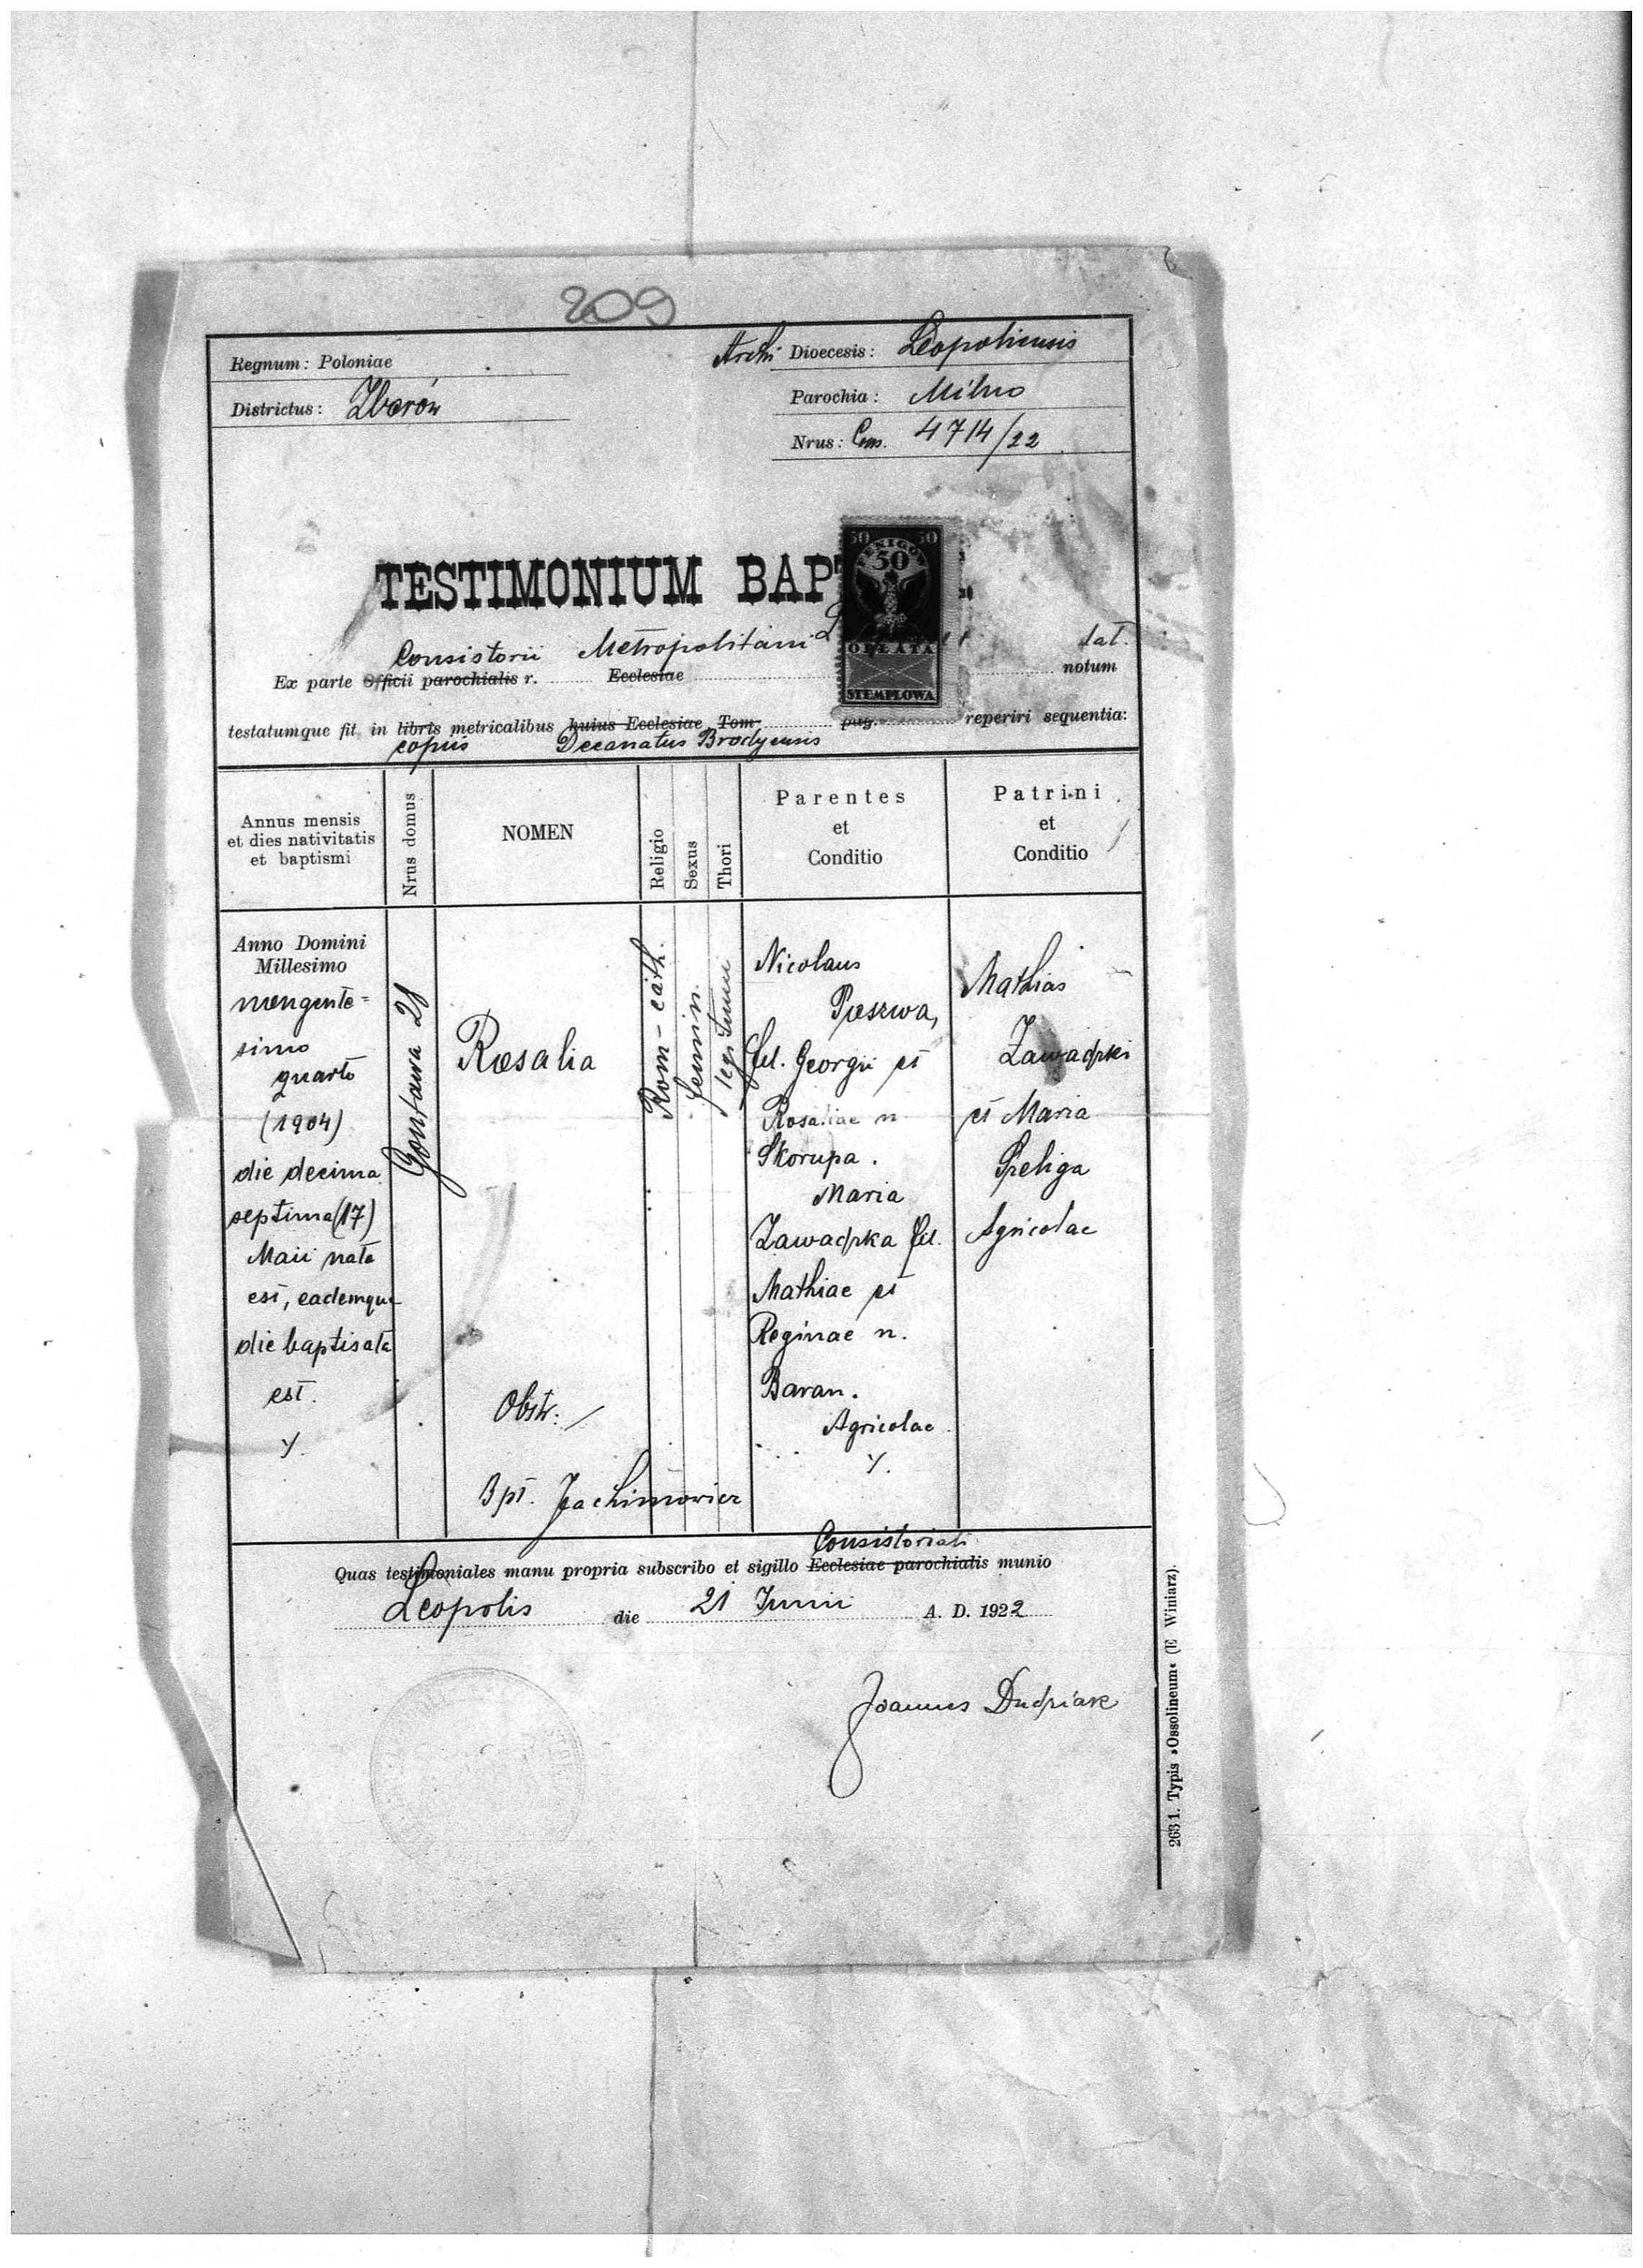 209
Regnum: Poloniae
Archi Dioecesis: Leopoliensis
Districtus: Zborów
Parochia: Milno
Nrus: Cons. 4714/22
TESTIMONIUM BAPT
50 50
FENIGÓW
50
OPŁATA
STEMPLOWA
Consistorii Metropolitani L lat.
Ex parte Officii parochialis r. Ecclesiae notum
testatumque fit, in libris metricalibus huius Ecclesiae Tom. pag. reperiri sequentia:
copiis Decanatus Brodyensis
Annus mensis
et dies nativitatis
et baptismi
Nrus domus
NOMEN
Religio
Sexus
Thori
Parentes
et
Conditio
Patrini
et
Conditio
Anno Domini
Millesimo
nongente=
simo
quarto
(1904)
die decima
septima (17)
Maii nata
est, eademque
die baptisata
est.
Y.
Gontawa 28
Rosalia
Obstr: /
Bpt. Jachimowicz
Rom-cath.
femin.
legitimi
Nicolaus
Pieszwa,
fil. Georgii et
Rosaliae n
Skorupa.
Maria
Zawadzka fil.
Mathiae et
Reginae n.
Baran.
Agricolae
Y.
Mathias
Zawadzki
et Maria
Preliga
Agricolae
Consistoriali
Quas testimoniales manu propria subscribo et sigillo Ecclesiae parochialis munio
Leopolis die 21 Junii A. D. 1922
Joannes Dudziak
263 1. Typis »Ossolineum« (E Winiarz).